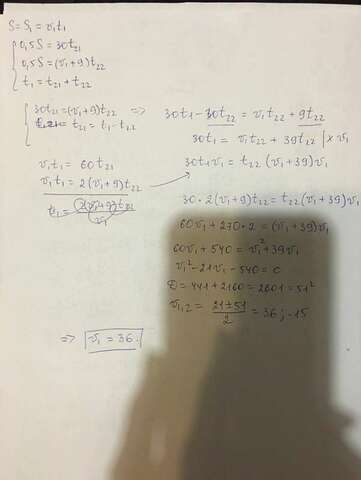 S = S₁ = v₁t₁
0,5S = 30t₂₁
0,5S = (v₁+9)t₂₂
t₁ = t₂₁ + t₂₂
30t₂₁ = (v₁+9)t₂₂ =>
t₂₁ = t₁ - t₂₂
v₁t₁ = 60t₂₁
v₁t₁ = 2(v₁+9)t₂₂
t₁ = 2(v₁+9)t₂₂ / v₁
30t₁ - 30t₂₂ = v₁t₂₂ + 9t₂₂
30t₁ = v₁t₂₂ + 39t₂₂ | × v₁
30t₁v₁ = t₂₂(v₁+39)v₁
30·2(v₁+9)t₂₂ = t₂₂(v₁+39)v₁
60v₁ + 270·2 = (v₁+39)v₁
60v₁ + 540 = v₁² + 39v₁
v₁² - 21v₁ - 540 = 0
D = 441 + 2160 = 2601 = 51²
v₁,₂ = (21±51)/2 = 36; -15
=> v₁ = 36.